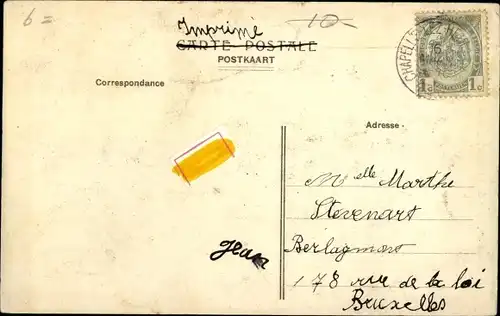 6=
Imprimé
-10-
CARTE POSTALE
POSTKAART
Correspondance
Adresse
1c 1c
Jean
Melle Marthe
Stevenart
Berlagmont
178 rue de la loi
Bruxelles